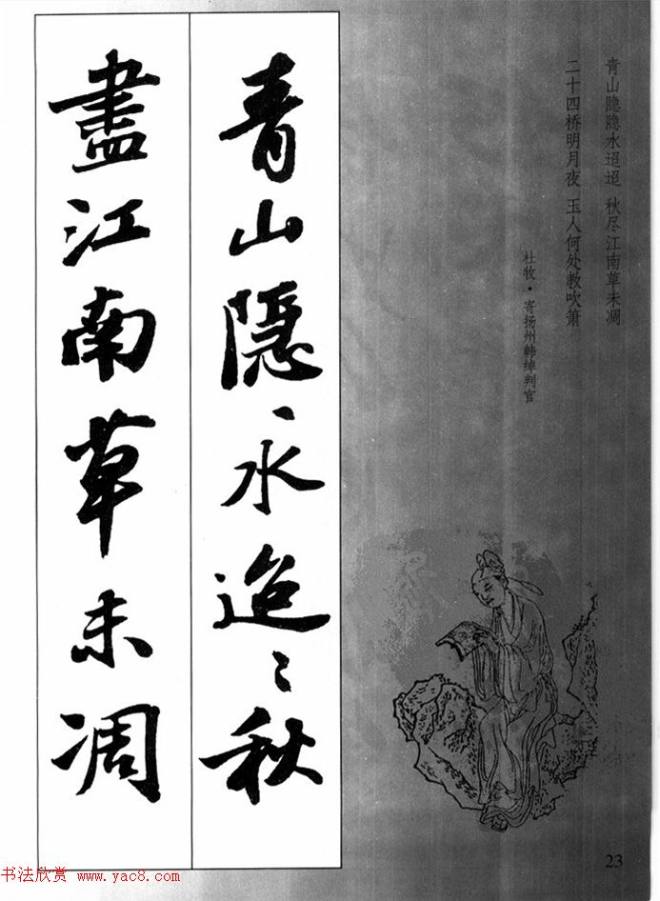 青山隐隐水迢迢 秋尽江南草未凋
二十四桥明月夜 玉人何处教吹箫
杜牧·寄扬州韩绰判官
青山隱〻水迢〻秋
盡江南草未凋
23
书法欣赏 www.yac8.com